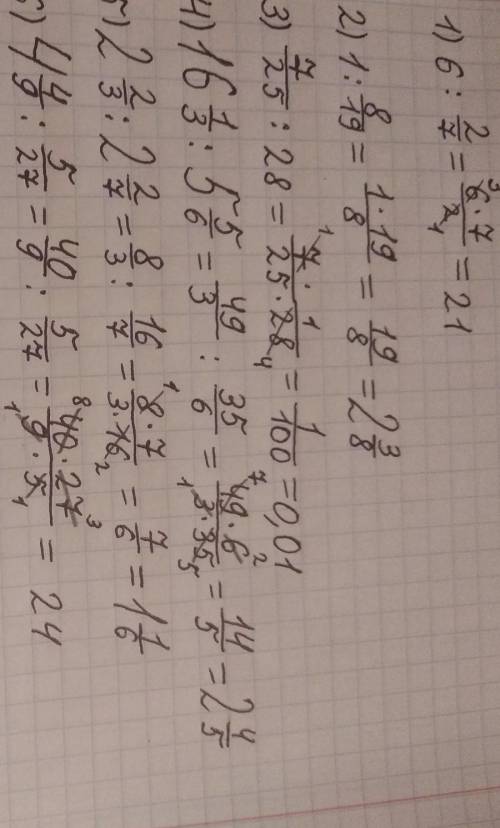 1) 6 : 2/7 = 6·7/2 = 21
2) 1 : 8/19 = 1·19/8 = 19/8 = 2 3/8
3) 7/25 : 28 = 7·1/25·28 = 1/100 = 0,01
4) 16 1/3 : 5 5/6 = 49/3 : 35/6 = 49·6/3·35 = 14/5 = 2 4/5
5) 2 2/3 : 2 2/7 = 8/3 : 16/7 = 8·7/3·16 = 7/6 = 1 1/6
6) 4 4/9 : 5/27 = 40/9 : 5/27 = 40·27/9·5 = 24